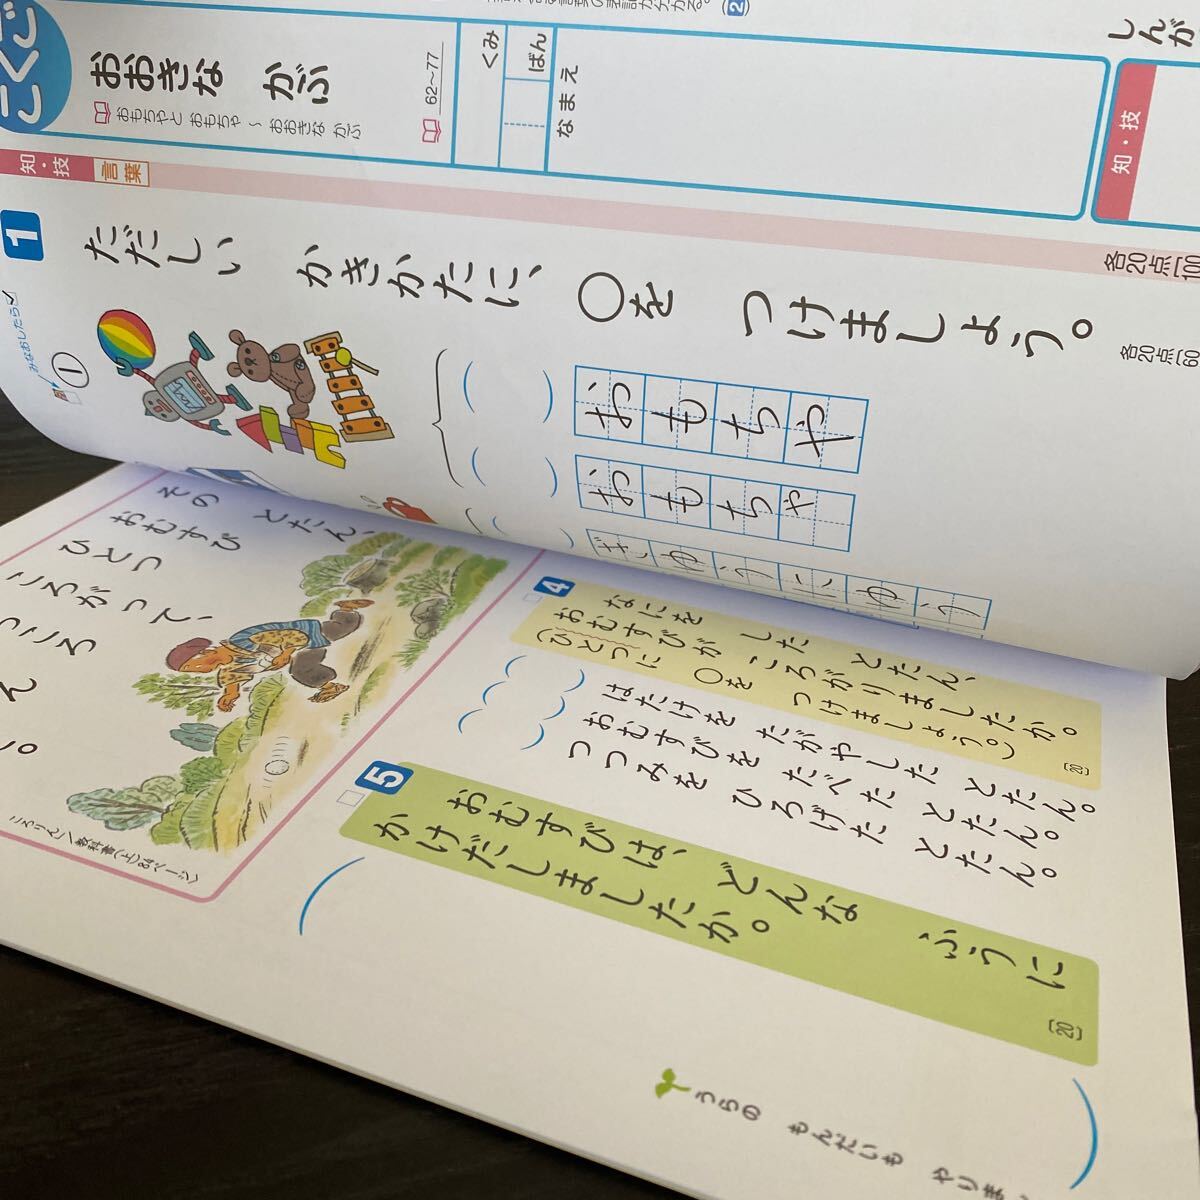 こくご
おおきな かぶ
おもちゃと おもちゃ ～ おおきな かぶ
62～77
くみ
ばん
なまえ
知・技
言葉
1
ただしい かきかたに、○を つけましょう。
各20点
みなおしたら✓
①
おもちや
おもちゃ
しんが
知・技
各20点[100
各20点[60
その とたん、
おむすび
ひとつ
ころがって、
っころ
ころりん〉/教科書(上)84ページ〉
4
なにを した とたん、
おむすびが ころがりましたか。
(ひとつに ○を つけましょう。)
[20]
はたけを たがやした とたん。
おむすびを たべた とたん。
つつみを ひろげた とたん。
5
おむすびは、どんな ふうに
かけだしましたか。
[20]
うらの もんだいも やりま